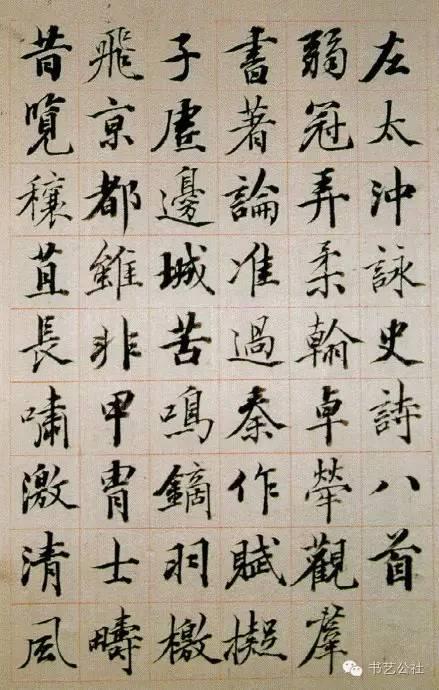 左太沖詠史詩八首
弱冠弄柔翰卓犖觀羣
書著論准過秦作賦擬
子虛邊城苦鳴鏑羽檄
飛京都雖非甲冑士疇
昔覽穰苴長嘯激清風
书艺公社